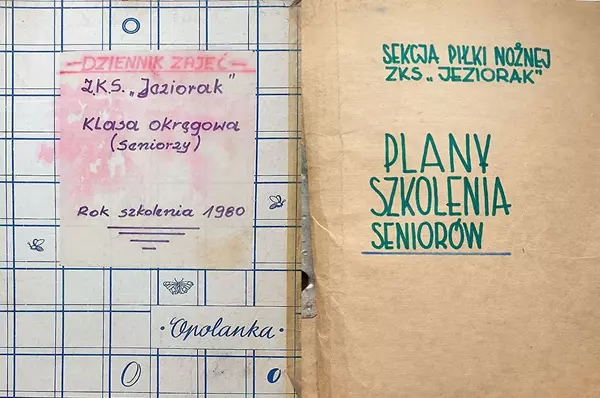 — DZIENNIK ZAJĘĆ —
Z.K.S. „Jeziorak"
Klasa okręgowa
(seniorzy)
Rok szkolenia 1980
·Opolanka·
SEKCJA PIŁKI NOŻNEJ
ZKS „JEZIORAK"
PLANY
SZKOLENIA
SENIORÓW